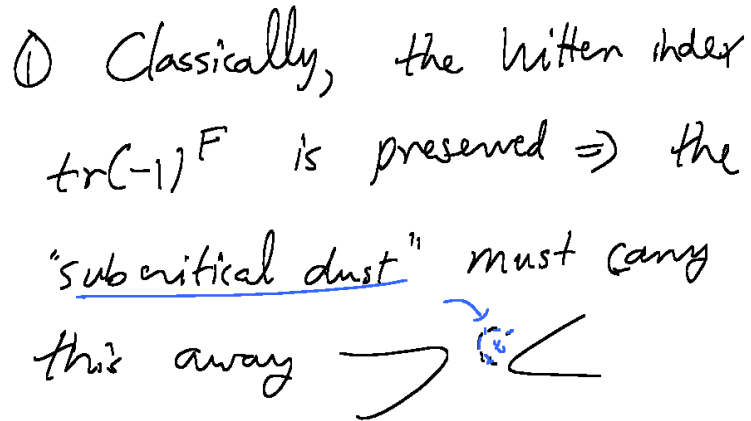 ① Classically, the Witten index
tr(-1)^F is preserved ⇒ the
"subcritical dust" must carry
this away